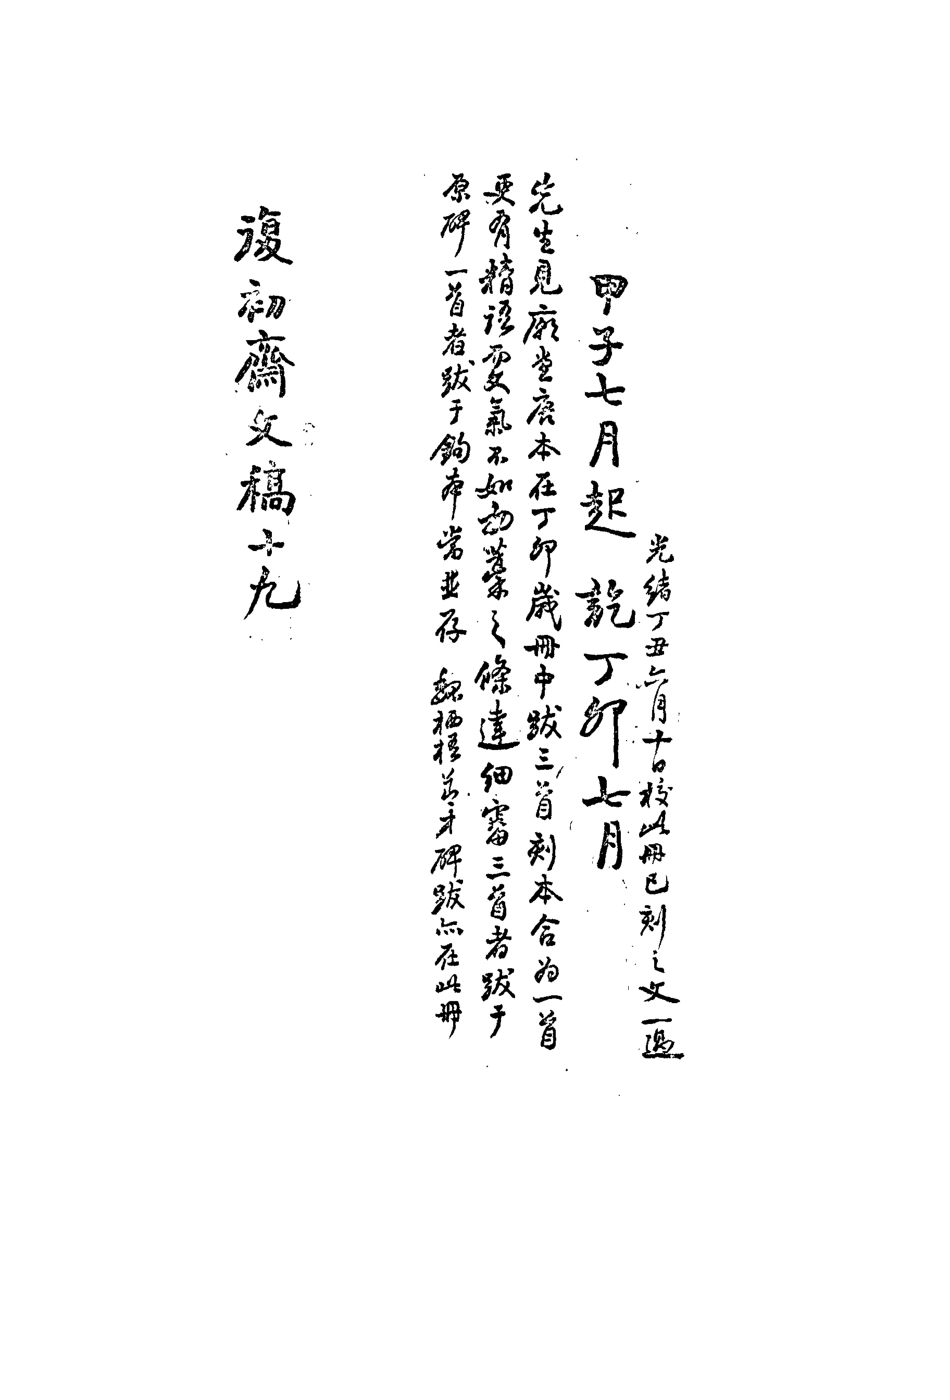 光緒丁丑六月十日校此冊已刻之文一過
甲子七月起 訖丁卯七月
先生見廟堂唐本在丁卯歲冊中跋三首刻本合為一首
更有精語而文氣不如初藁之條達細審三首者跋于
原碑一首者跋于鉤本當並存 魏栖梧善才碑跋亦在此冊
復初齋文稿十九